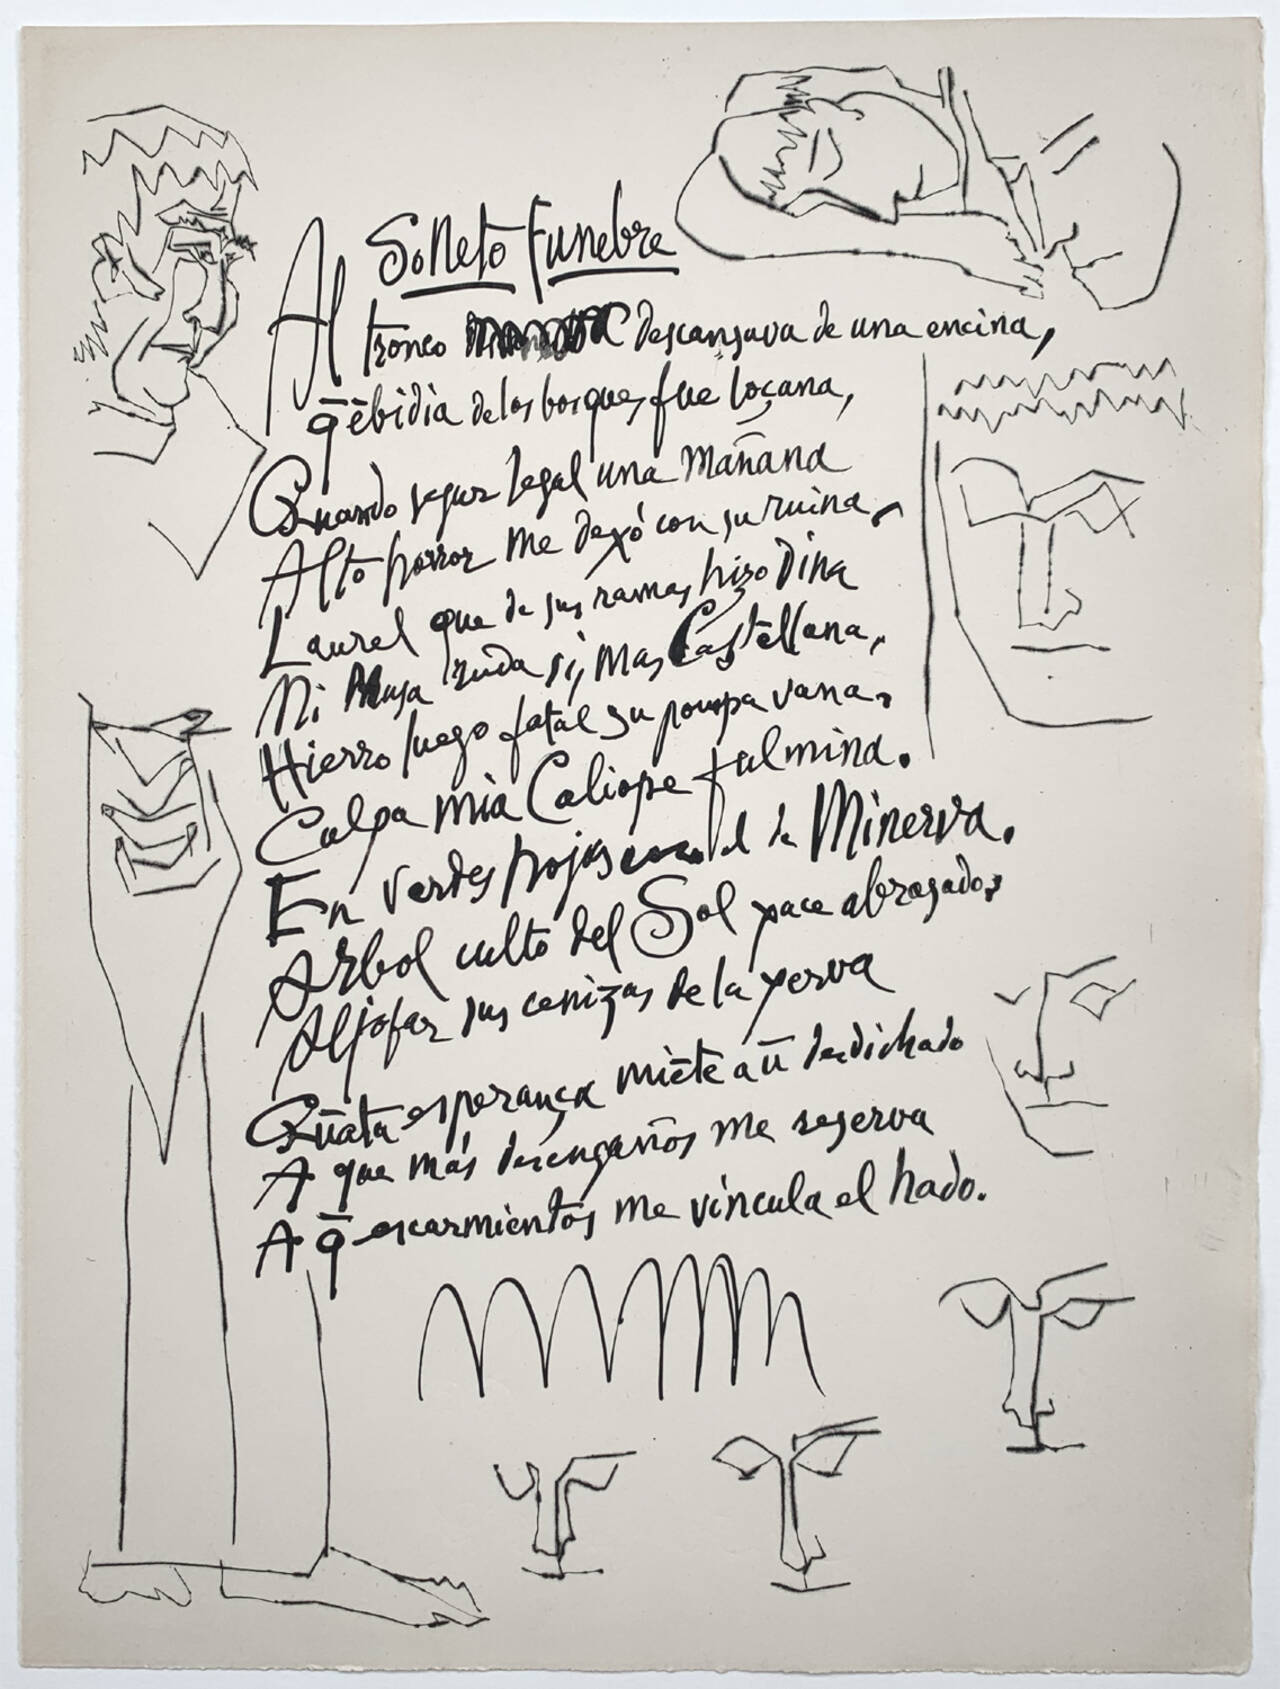 Soneto Funebre
Al tronco descansava de una encina,
q̄ ēbidia de los bosques fue loçana,
Quando segur legal una mañana
Alto horror me dexó con su ruina.
Laurel que de sus ramas hizo Dina
Mi Musa ruda sí, mas Castellana,
Hierro luego fatal su pompa vana.
Culpa mia Caliope fulmina.
En verdes hojas el de Minerva.
Arbol culto del Sol yace abrasado,
Aljofar sus cenizas de la yerva
Quāta esperança miēte a ū desdichado
A que más desengaños me reserva
A q̄ escarmientos me vincula el hado.